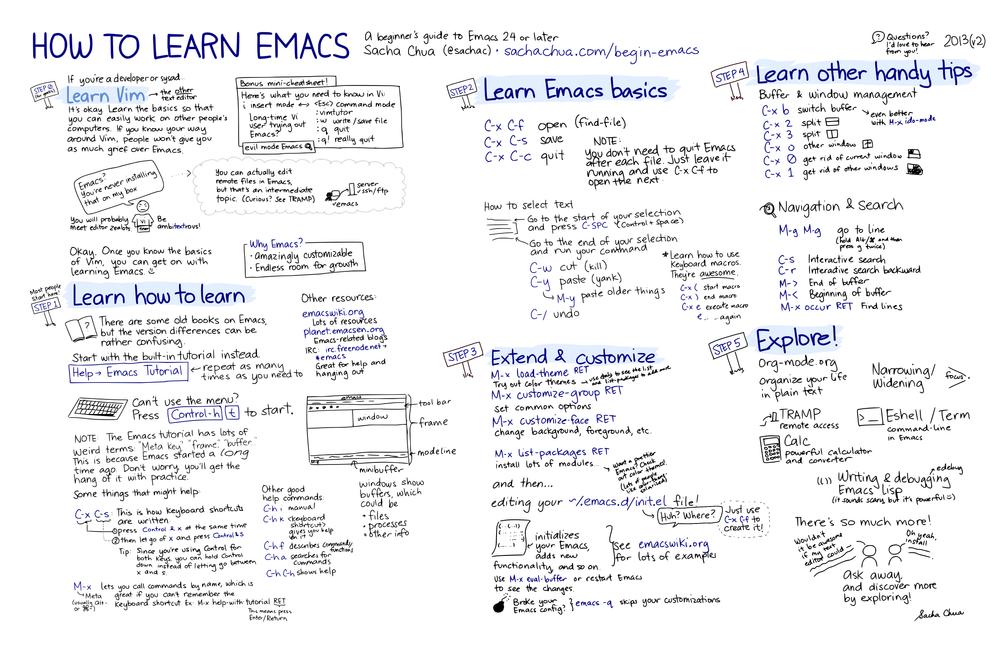 HOW TO LEARN EMACS
A beginner's guide to Emacs 24 or later
Sacha Chua (@sachac) · sachachua.com/begin-emacs
Questions?
I'd love to hear
from you!
2013 (v2)
STEP 0
If you're a developer or sysad...
Learn Vim → the other
text editor
It's okay. Learn the basics so that
you can easily work on other people's
computers. If you know your way
around Vim, people won't give you
as much grief over Emacs.
Bonus mini-cheatsheet!
Here's what you need to know in Vi:
i insert mode ↔ <Esc> command mode
Long-time Vi
user trying out
Emacs?
evil mode Emacs
:vimtutor
:w write/save file
:q quit
:q! really quit
Emacs?
You're never installing
that on my box
You can actually edit
remote files in Emacs,
but that's an intermediate
topic. (Curious? See TRAMP)
server
ssh/ftp
emacs
You will probably
meet editor zealots
Vi
Be
ambitextrous!
Okay. Once you know the basics
of Vim, you can get on with
learning Emacs
Why Emacs?
· Amazingly customizable
· Endless room for growth
Most people
start here!
STEP 1
Learn how to learn
There are some old books on Emacs,
but the version differences can be
rather confusing.
Start with the built-in tutorial instead.
Help → Emacs Tutorial
← repeat as many
times as you need to
Other resources:
emacswiki.org
Lots of resources
planet.emacsen.org
Emacs-related blogs
IRC: irc.freenode.net
#emacs
Great for help and
hanging out
Can't use the menu?
Press Control-h t to start.
emacs
window
tool bar
frame
modeline
minibuffer
NOTE The Emacs tutorial has lots of
weird terms: "Meta key" "frame," "buffer"
This is because Emacs started a long
time ago. Don't worry, you'll get the
hang of it with practice.
Some things that might help:
C-x C-s This is how keyboard shortcuts
are written.
① press Control & x at the same time
② then let go of x and press Control & s
Tip: Since you're using Control for
both keys, you can hold Control
down instead of letting go between
x and s.
M-x lets you call commands by name, which is
great if you can't remember the
keyboard shortcut Ex: M-x help-with-tutorial RET
Meta
(usually Alt-
or ⌘-?)
This means press
Enter/Return
Other good
help commands:
C-h i manual
C-h k <keyboard
shortcut>
gives you help
on it
C-h f describes commands/
functions
C-h a searches for
commands
C-h C-h shows help
windows show
buffers, which
could be
• files
• processes
• other info
STEP 2
Learn Emacs basics
C-x C-f open (find-file)
C-x C-s save
C-x C-c quit
NOTE:
You don't need to quit Emacs
after each file. Just leave it
running and use C-x C-f to
open the next.
How to select text
Go to the start of your selection
and press C-SPC (Control + Space)
Go to the end of your selection
and run your command
C-w cut (kill)
C-y paste (yank)
M-y paste older things
C-/ undo
* Learn how to use
Keyboard macros.
They're awesome.
C-x ( start macro
C-x ) end macro
C-x e execute macro
e... ...again
STEP 3
Extend & customize
M-x load-theme RET
Try out color themes
M-x customize-group RET
set common options
M-x customize-face RET
change background, foreground, etc.
M-x list-packages RET
install lots of modules...
Want a prettier
Emacs? Check
out color themes!
and then...
editing your ~/.emacs.d/init.el file!
Huh? Where?
Just use
C-x C-f to
create it!
initializes
your Emacs,
adds new
functionality, and so on
See emacswiki.org
for lots of examples
Use M-x eval-buffer or restart Emacs
to see the changes.
Broke your
Emacs config?
emacs -q skips your customizations
STEP 4
Learn other handy tips
Buffer & window management
C-x b switch buffer
even better
with M-x ido-mode
C-x 2 split
C-x 3 split
C-x o other window
C-x 0 get rid of current window
C-x 1 get rid of other windows
Navigation & Search
M-g M-g go to line
(hold Alt/⌘ and then
press g twice)
C-s Interactive search
C-r Interactive search backward
M-> End of buffer
M-< Beginning of buffer
M-x occur RET Find lines
STEP 5
Explore!
Org-mode.org
Organize your life
in plain text
Narrowing/
Widening
focus
TRAMP
remote access
Eshell / Term
command-line
in Emacs
Calc
powerful calculator
and converter
Writing & debugging
Emacs Lisp
edebug
(it sounds scary, but it's powerful)
There's so much more!
Wouldn't
it be awesome
if my text
editor could...
Oh yeah,
install...
Ask away,
and discover more
by exploring!
Sacha Chua